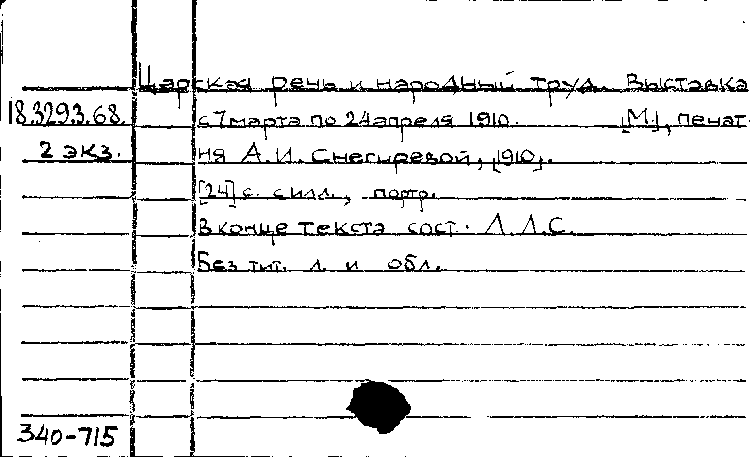 Царская речь и народный труд. Выставка
18.329.3.68. с 7 марта по 24 апреля 1910. [М.], печат-
2 экз. ня А.И. Снегыревой, [1910].
[24] с. с илл., портр.
В конце текста сост. Л.Л.С.
Без тит. л. и обл.
340-715